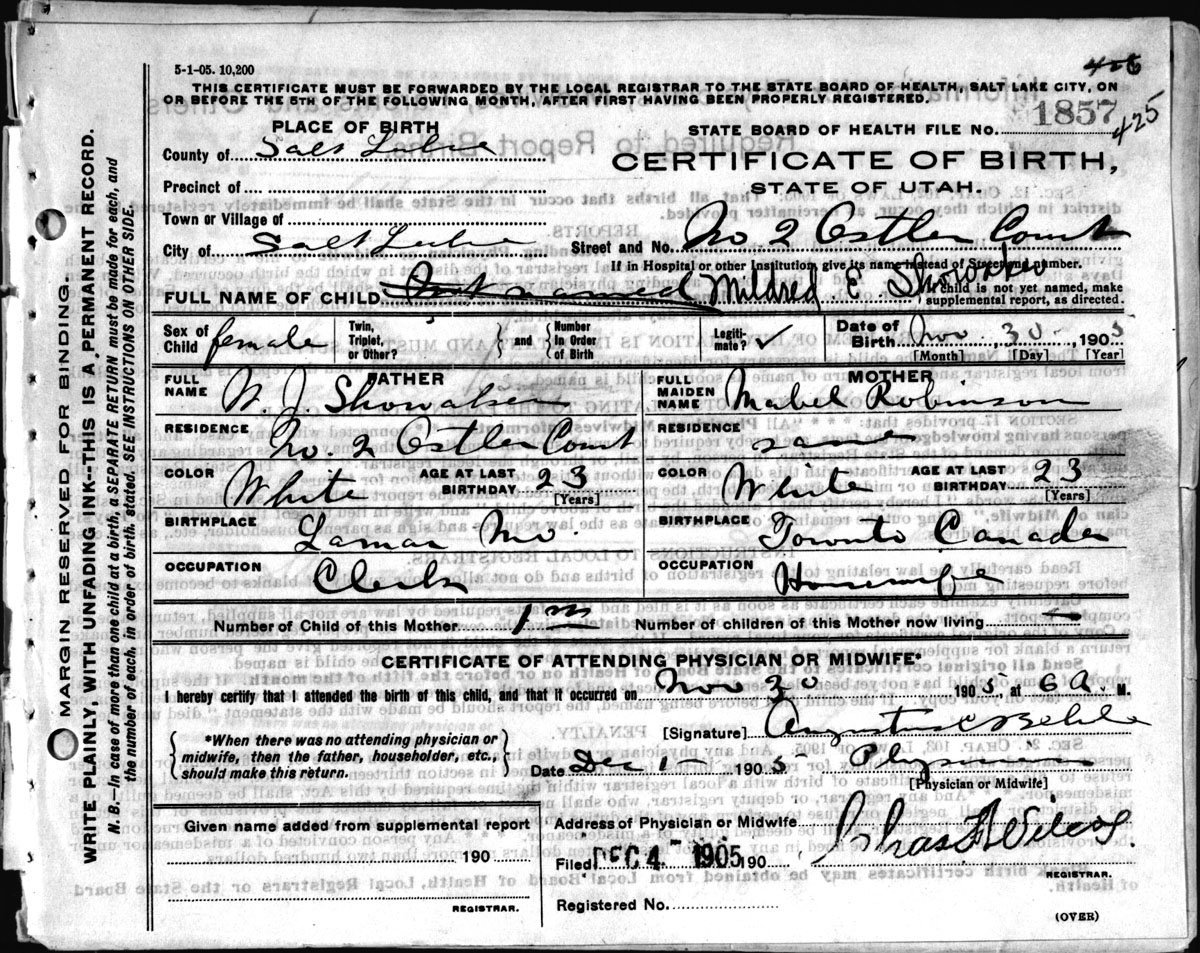 5-1-05. 10,200
406
THIS CERTIFICATE MUST BE FORWARDED BY THE LOCAL REGISTRAR TO THE STATE BOARD OF HEALTH, SALT LAKE CITY, ON
OR BEFORE THE 5TH OF THE FOLLOWING MONTH, AFTER FIRST HAVING BEEN PROPERLY REGISTERED.
PLACE OF BIRTH
STATE BOARD OF HEALTH FILE No. 1857 425
County of Salt Lake
CERTIFICATE OF BIRTH,
Precinct of
STATE OF UTAH.
Town or Village of
City of Salt Lake
Street and No. No 2 Ostler Court
If in Hospital or other Institution, give its name instead of Street and number.
FULL NAME OF CHILD Not named Mildred E Showalter
child is not yet named, make
supplemental report, as directed.
Sex of Child female
Twin, Triplet, or Other?
and Number In Order of Birth
Legitimate? ✓
Date of Birth Nov 30 1905
[Month] [Day] [Year]
FATHER
FULL NAME W. J. Showalter
MOTHER
FULL MAIDEN NAME Mabel Robinson
RESIDENCE No. 2 Ostler Court
RESIDENCE same
COLOR White AGE AT LAST BIRTHDAY 23 [Years]
COLOR White AGE AT LAST BIRTHDAY 23 [Years]
BIRTHPLACE Lamar Mo.
BIRTHPLACE Toronto Canada
OCCUPATION Clerk
OCCUPATION Housewife
Number of Child of this Mother 1
Number of children of this Mother now living
CERTIFICATE OF ATTENDING PHYSICIAN OR MIDWIFE*
I hereby certify that I attended the birth of this child, and that it occurred on Nov 30 1905, at 6 A. M.
[Signature] Augustus C Behle
*When there was no attending physician or
midwife, then the father, householder, etc.,
should make this return.
Date Dec 1 1905 Physician
[Physician or Midwife]
Given name added from supplemental report
190
REGISTRAR.
Address of Physician or Midwife
Filed DEC 4 1905 190
Chas F Wilcox
REGISTRAR.
Registered No.
(OVER)
MARGIN RESERVED FOR BINDING.
WRITE PLAINLY, WITH UNFADING INK--THIS IS A PERMANENT RECORD.
N. B.—In case of more than one child at a birth, a SEPARATE RETURN must be made for each, and
the number of each, in order of birth, stated. SEE INSTRUCTIONS ON OTHER SIDE.